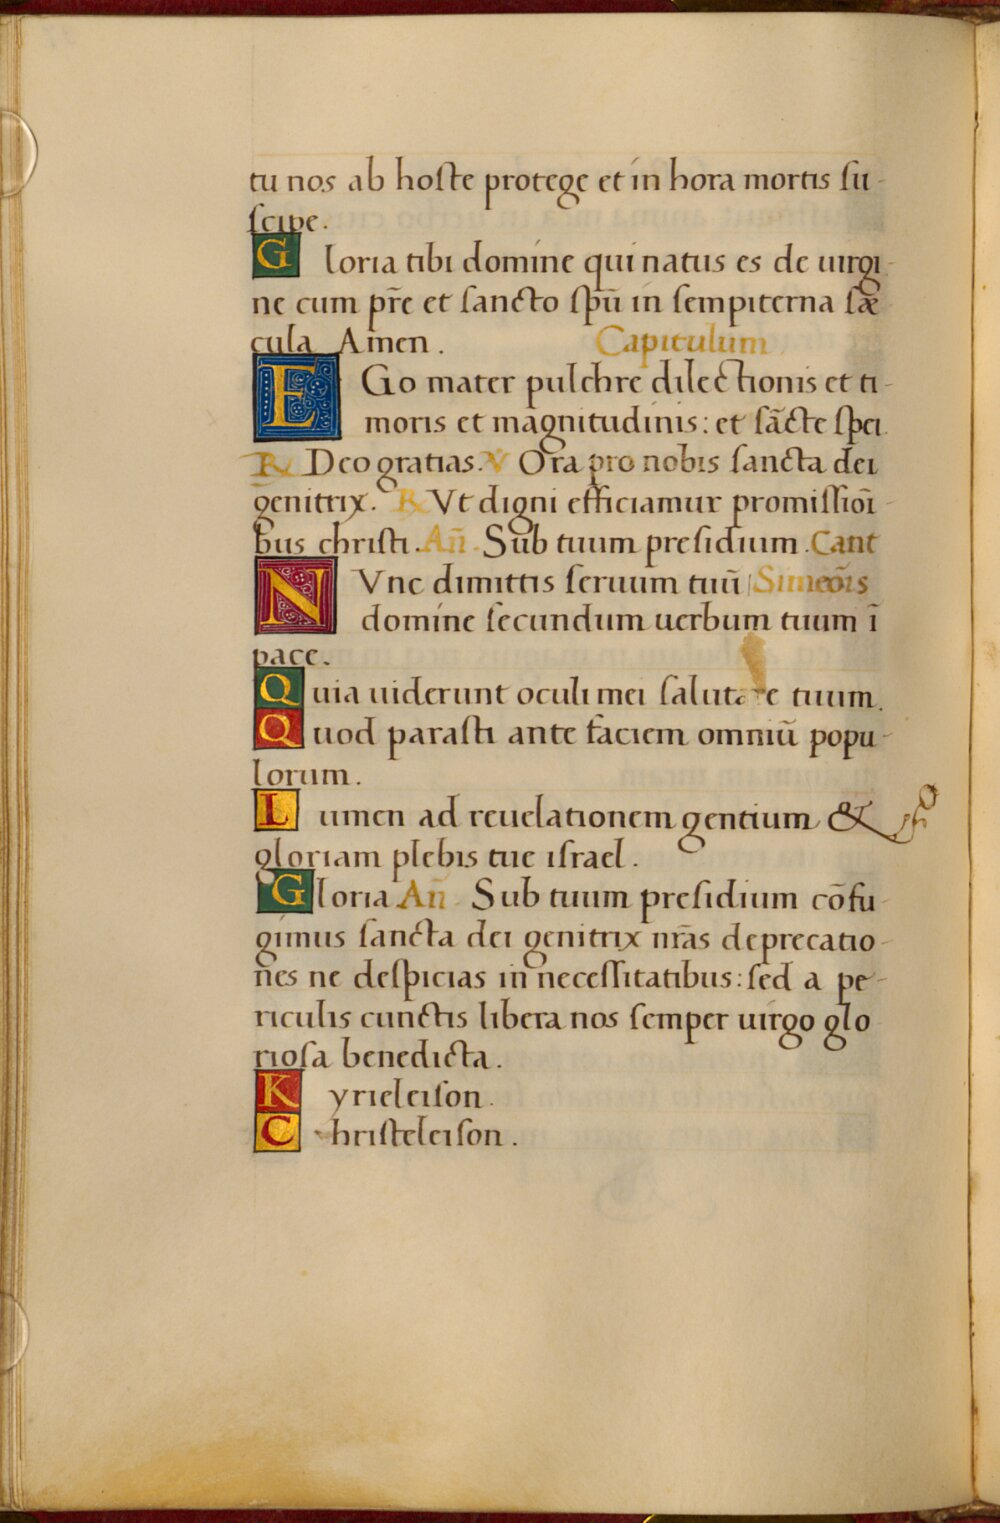 tu nos ab hoste protege et in hora mortis su-
scipe.
Gloria tibi domine qui natus es de uirgi-
ne cum pr̄e et sancto spū in sempiterna sæ
cula Amen. Capitulum
EGo mater pulchre dilectionis et ti-
moris et magnitudinis: et sācte spei.
R Deo gratias. V Ora pro nobis sancta dei
genitrix. R Vt digni efficiamur promissioī-
bus christi. An̄. Sub tuum presidium. Cant
NVnc dimittis seruum tuū Simeōis
domine secundum uerbum tuum ī
pace.
Quia uiderunt oculi mei salutare tuum.
Quod parasti ante faciem omniū popu-
lorum.
Lumen ad reuelationem gentium &
gloriam plebis tue israel.
Gloria An̄. Sub tuum presidium cōfu-
gimus sancta dei genitrix nr̄as deprecatio-
nes ne despicias in necessitatibus: sed a pe-
riculis cunctis libera nos semper uirgo glo
riosa benedicta.
Kyrieleison.
Christeleison.